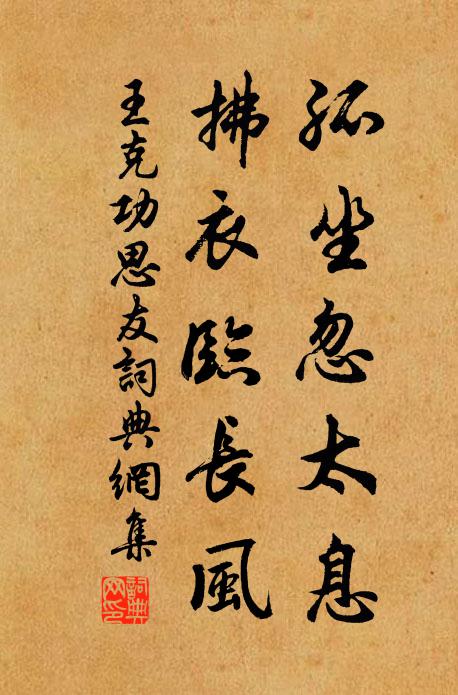 孤坐忽太息
拂衣臨長風
王克功思友詞典網集
詞典
网印